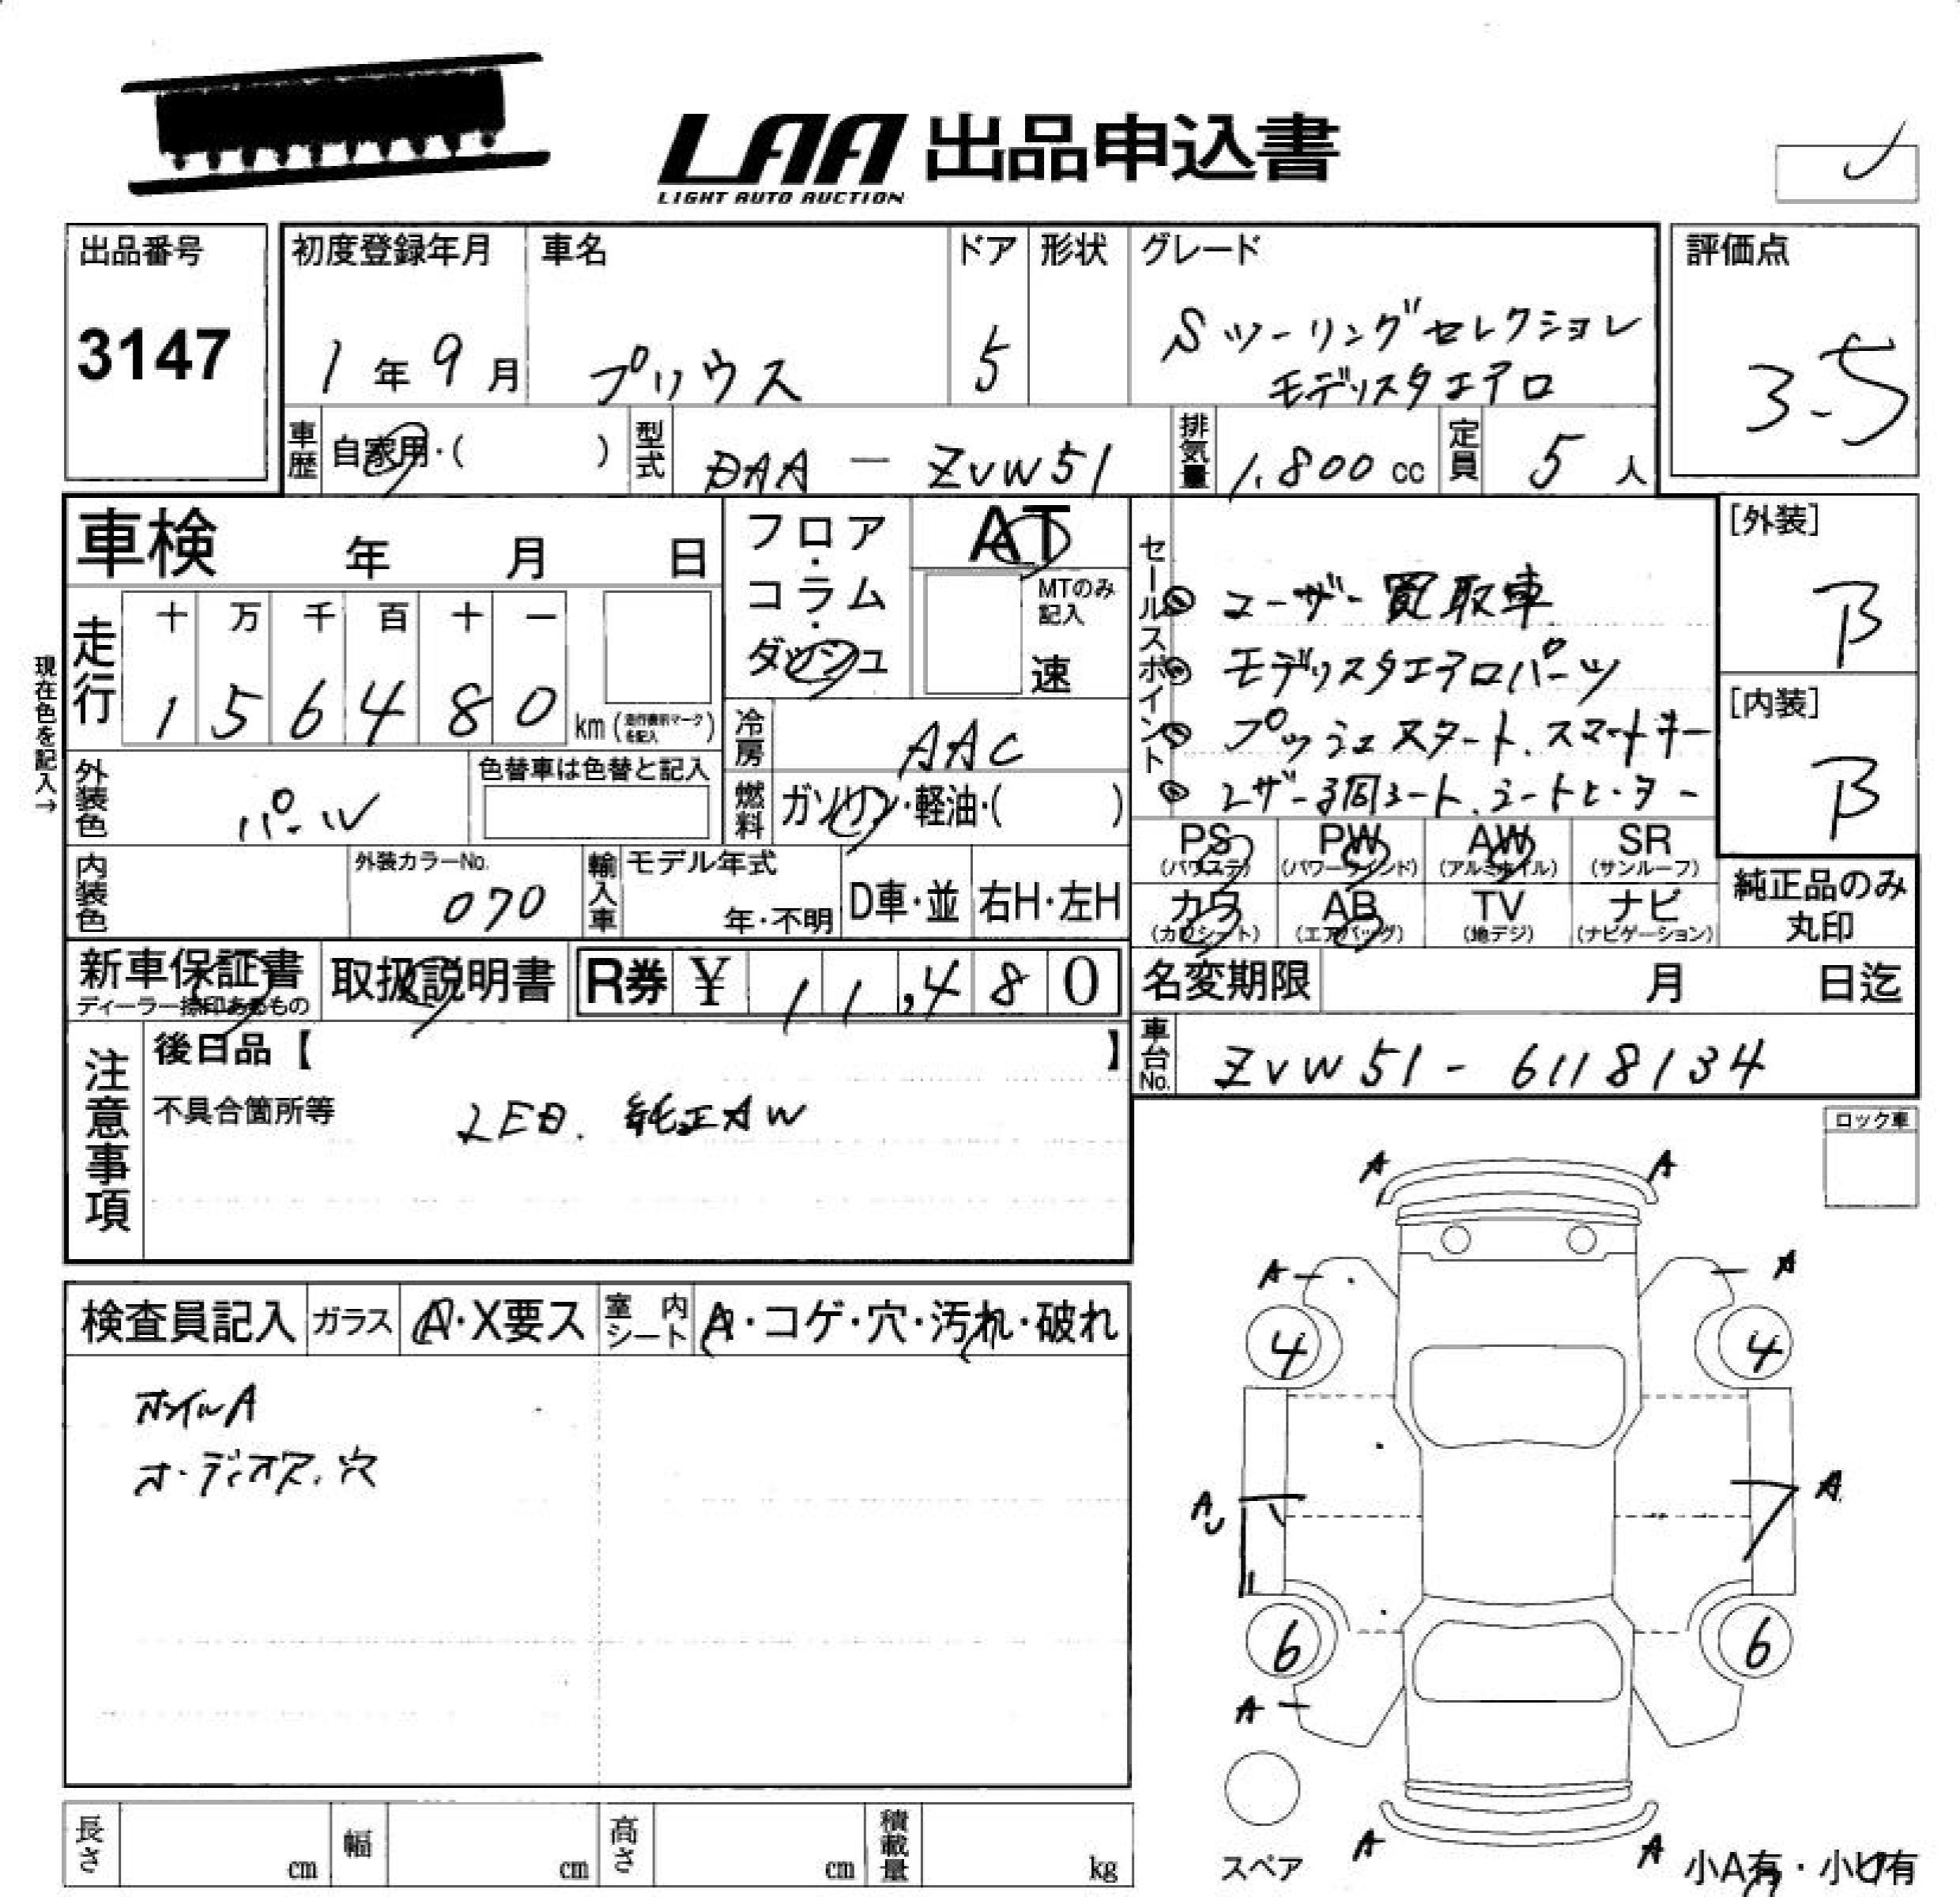 LAA 出品申込書
LIGHT AUTO AUCTION
出品番号
3147
初度登録年月
1年9月
車名
プリウス
ドア
5
形状
グレード
Sツーリングセレクション
モデリスタエアロ
評価点
3.5
車歴
自家用・( )
型式
DAA - ZVW51
排気量
1,800 cc
定員
5人
車検 年 月 日
フロア・コラム・ダッシュ
AT
MTのみ記入
速
現在色を記入→
走行
十 万 千 百 十 一
1 5 6 4 8 0 km
冷房
AAC
外装色
パール
色替車は色替と記入
燃料
ガソリン・軽油・( )
内装色
外装カラーNo.
070
輸入車
モデル年式
年・不明
D車・並
右H・左H
セールスポイント
ユーザー買取車
モデリスタエアロパーツ
プッシュスタート、スマートキー
レザー調シート、シートヒーター
[外装]
B
[内装]
B
PS (パワステ)
PW (パワーウインド)
AW (アルミホイル)
SR (サンルーフ)
カワ (カワシート)
AB (エアバッグ)
TV (地デジ)
ナビ (ナビゲーション)
純正品のみ
丸印
新車保証書
ディーラー捺印あるもの
取扱説明書
R券 ¥ 11,480
名変期限 月 日迄
車台No.
ZVW51 - 6118134
注意事項
後日品【 】
不具合箇所等
LED. 純正AW
ロック車
検査員記入
ガラス
A・X要ス
室内シート
A・コゲ・穴・汚れ・破れ
ホイルA
オーディオレス.穴
A A
A A
4 4
A A
6 6
A
スペア
A A
小A有・小U有
長さ cm
幅 cm
高さ cm
積載量 kg